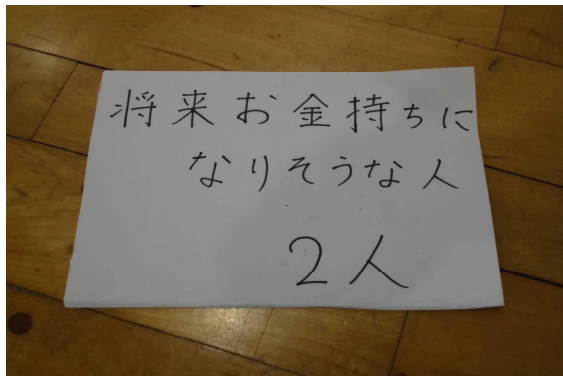 将来お金持ちに
なりそうな人
2人